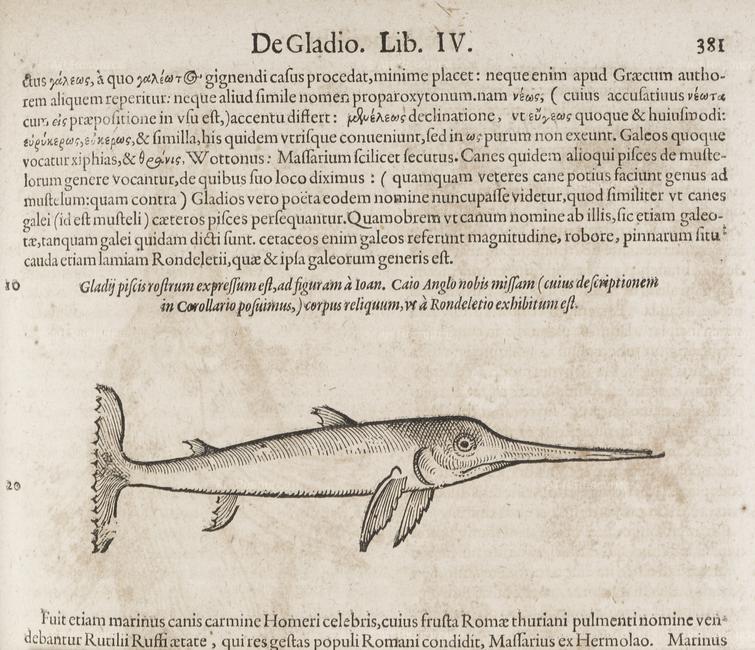 De Gladio. Lib. IV. 381
ctus γάλεως, à quo γαλέωτ gignendi casus procedat, minime placet: neque enim apud Græcum autho-
rem aliquem reperitur: neque aliud simile nomen proparoxytonum. nam νέως, ( cuius accusatiuus νέωτα
cum εἰς præpositione in vsu est, ) accentu differt: declinatione, vt quoque & huiusmodi:
εὐρύκερως, εὔκερως, & similla, his quidem vtrisque conueniunt, sed in ως purum non exeunt. Galeos quoque
vocatur xiphias, & Wottonus: Massarium scilicet secutus. Canes quidem alioqui pisces de muste-
lorum genere vocantur, de quibus suo loco diximus: ( quamquam veteres cane potius faciunt genus ad
mustelum: quam contra ) Gladios vero poëta eodem nomine nuncupasse videtur, quod similiter vt canes
galei (id est musteli) cæteros pisces persequantur. Quamobrem vt canum nomine ab illis, sic etiam galeo-
tæ, tanquam galei quidam dicti sunt. cetaceos enim galeos referunt magnitudine, robore, pinnarum situ:
cauda etiam lamiam Rondeletii, quæ & ipsa galeorum generis est.
10 Gladij piscis rostrum expressum est, ad figuram à Ioan. Caio Anglo nobis missam (cuius descriptionem
in Corollario posuimus, ) corpus reliquum, vt à Rondeletio exhibitum est.
20
Fuit etiam marinus canis carmine Homeri celebris, cuius frusta Romæ thuriani pulmenti nomine ven-
debantur Rutilii Ruffi ætate, qui res gestas populi Romani condidit, Massarius ex Hermolao. Marinus